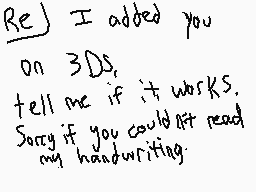 Re) I added you
on 3DS,
tell me if it works.
Sorry if you couldn't read
my handwriting.